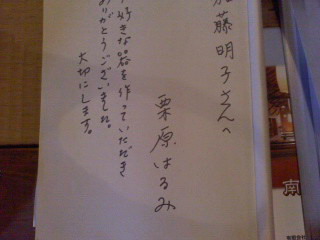 加藤明子さんへ
好きな器を作っていただき
ありがとうございました。
大切にします。
栗原はるみ
南